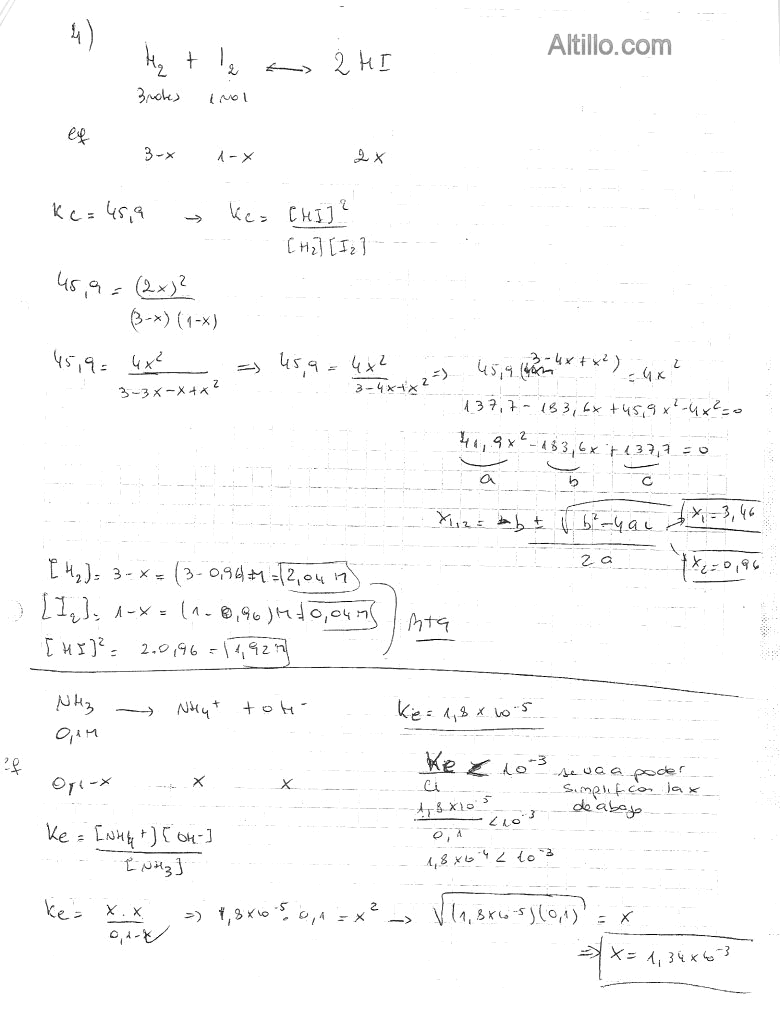 4)
Altillo.com
H₂ + I₂ ⟷ 2 HI
3 moles 1 mol
eq
3-x 1-x 2x
Kc = 45,9 → Kc = [HI]² / [H₂][I₂]
45,9 = (2x)² / (3-x)(1-x)
45,9 = 4x² / 3-3x-x+x² ⇒ 45,9 = 4x² / 3-4x+x² ⇒ 45,9 (3-4x+x²) = 4x²
137,7 - 183,6x + 45,9x² - 4x² = 0
41,9x² - 183,6x + 137,7 = 0
a b c
x₁,₂ = -b ± √b²-4ac / 2a
x₁ = 3,46
x₂ = 0,96
[H₂] = 3-x = (3-0,96)M = 2,04 M
[I₂] = 1-x = (1-0,96)M = 0,04 M
[HI]² = 2.0,96 = 1,92 M
Rta
NH₃ → NH₄⁺ + OH⁻ Ke = 1,8 x 10⁻⁵
0,1 M
eq
0,1-x x x
Ke / Ci < 10⁻³ se va a poder
simplificar la x
de abajo
1,8x10⁻⁵ / 0,1 < 10⁻³
1,8x10⁻⁴ < 10⁻³
Ke = [NH₄⁺][OH⁻] / [NH₃]
Ke = x.x / 0,1-x ⇒ 1,8x10⁻⁵ . 0,1 = x² → √(1,8x10⁻⁵)(0,1) = x
⇒ x = 1,34x10⁻³